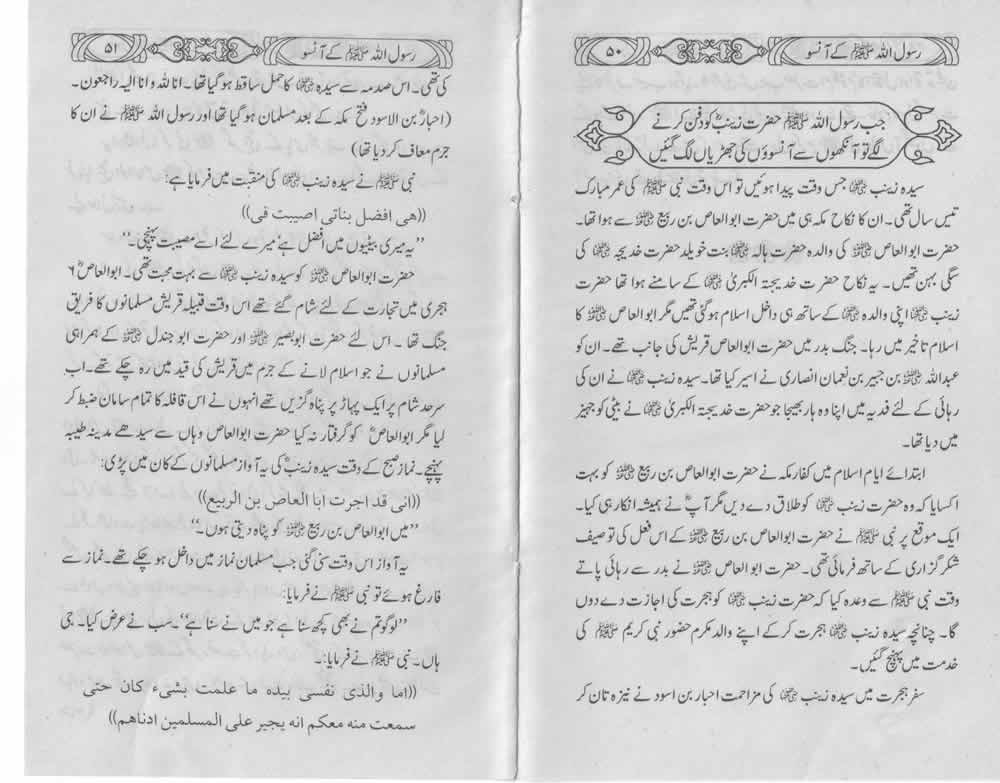 رسول اللہ ﷺ کے آنسو
۵۰
جب رسول اللہ ﷺ حضرت زینبؓ کو دفن کرنے
لگے تو آنکھوں سے آنسوؤں کی جھڑیاں لگ گئیں
سیدہ زینب رضی اللہ عنہا جس وقت پیدا ہوئیں تو اس وقت نبی ﷺ کی عمر مبارک
تیس سال تھی۔ ان کا نکاح مکہ ہی میں حضرت ابوالعاص بن ربیع رضی اللہ عنہ سے ہوا تھا۔
حضرت ابوالعاص رضی اللہ عنہ کی والدہ حضرت ہالہ رضی اللہ عنہا بنت خویلد حضرت خدیجہ رضی اللہ عنہا کی
سگی بہن تھیں۔ یہ نکاح حضرت خدیجۃ الکبریٰ رضی اللہ عنہا کے سامنے ہوا تھا حضرت
زینب رضی اللہ عنہا اپنی والدہ رضی اللہ عنہا کے ساتھ ہی داخل اسلام ہو گئی تھیں مگر ابوالعاص رضی اللہ عنہ کا
اسلام تاخیر میں رہا۔ جنگ بدر میں حضرت ابوالعاص قریش کی جانب تھے۔ ان کو
عبداللہ رضی اللہ عنہ بن جبیر بن نعمان انصاری نے اسیر کیا تھا۔ سیدہ زینب رضی اللہ عنہا نے ان کی
رہائی کے لئے فدیہ میں اپنا وہ ہار بھیجا جو حضرت خدیجۃ الکبریٰ رضی اللہ عنہا نے بیٹی کو جہیز
میں دیا تھا۔
ابتدائے ایام اسلام میں کفار مکہ نے حضرت ابوالعاص بن ربیع رضی اللہ عنہ کو بہت
اکسایا کہ وہ حضرت زینب رضی اللہ عنہا کو طلاق دے دیں مگر آپؓ نے ہمیشہ انکار ہی کیا۔
ایک موقع پر نبی ﷺ نے حضرت ابوالعاص بن ربیع رضی اللہ عنہ کے اس فعل کی توصیف
شکر گزاری کے ساتھ فرمائی تھی۔ حضرت ابوالعاص رضی اللہ عنہ نے بدر سے رہائی پاتے
وقت نبی ﷺ سے وعدہ کیا کہ حضرت زینب رضی اللہ عنہا کو ہجرت کی اجازت دے دوں
گا۔ چنانچہ سیدہ زینب رضی اللہ عنہا ہجرت کر کے اپنے والد مکرم حضور نبی کریم ﷺ کی
خدمت میں پہنچ گئیں۔
سفر ہجرت میں سیدہ زینب رضی اللہ عنہا کی مزاحمت احبار بن اسود نے نیزہ تان کر
رسول اللہ ﷺ کے آنسو
۵۱
کی تھی۔ اس صدمہ سے سیدہ رضی اللہ عنہا کا حمل ساقط ہو گیا تھا۔ انا للہ وانا الیہ راجعون۔
(احبارؓ بن الاسود فتح مکہ کے بعد مسلمان ہو گیا تھا اور رسول اللہ ﷺ نے ان کا
جرم معاف کر دیا تھا)
نبی ﷺ نے سیدہ زینب رضی اللہ عنہا کی منقبت میں فرمایا ہے:
((هی افضل بناتی اصیبت فی))
”یہ میری بیٹیوں میں افضل ہے‘ میرے لئے اسے مصیبت پہنچی۔“
حضرت ابوالعاص رضی اللہ عنہ کو سیدہ زینب رضی اللہ عنہا سے بہت محبت تھی۔ ابوالعاصؓ ۶
ہجری میں تجارت کے لئے شام گئے تھے اس وقت قبیلہ قریش مسلمانوں کا فریق
جنگ تھا۔ اس لئے حضرت ابوبصیر رضی اللہ عنہ اور حضرت ابو جندل رضی اللہ عنہ کے ہمراہی
مسلمانوں نے جو اسلام لانے کے جرم میں قریش کی قید میں رہ چکے تھے۔ اب
سرحد شام پر ایک پہاڑ پر پناہ گزیں تھے انہوں نے اس قافلہ کا تمام سامان ضبط کر
لیا مگر ابوالعاصؓ کو گرفتار نہ کیا حضرت ابوالعاص وہاں سے سیدھے مدینہ طیبہ
پہنچے۔ نماز صبح کے وقت سیدہ زینبؓ کی یہ آواز مسلمانوں کے کان میں پڑی:
((انی قد اجرت ابا العاص بن الربیع))
”میں ابوالعاص بن ربیع رضی اللہ عنہ کو پناہ دیتی ہوں۔“
یہ آواز اس وقت سنی گئی جب مسلمان نماز میں داخل ہو چکے تھے۔ نماز سے
فارغ ہوئے تو نبی ﷺ نے فرمایا:
”لوگو تم نے بھی کچھ سنا ہے جو میں نے سنا ہے“۔ سب نے عرض کیا۔ جی
ہاں۔ نبی ﷺ نے فرمایا:۔
((اما والذی نفسی بیدہ ما علمت بشیء کان حتی
سمعت منه معکم انه یجیر علی المسلمین ادناهم))